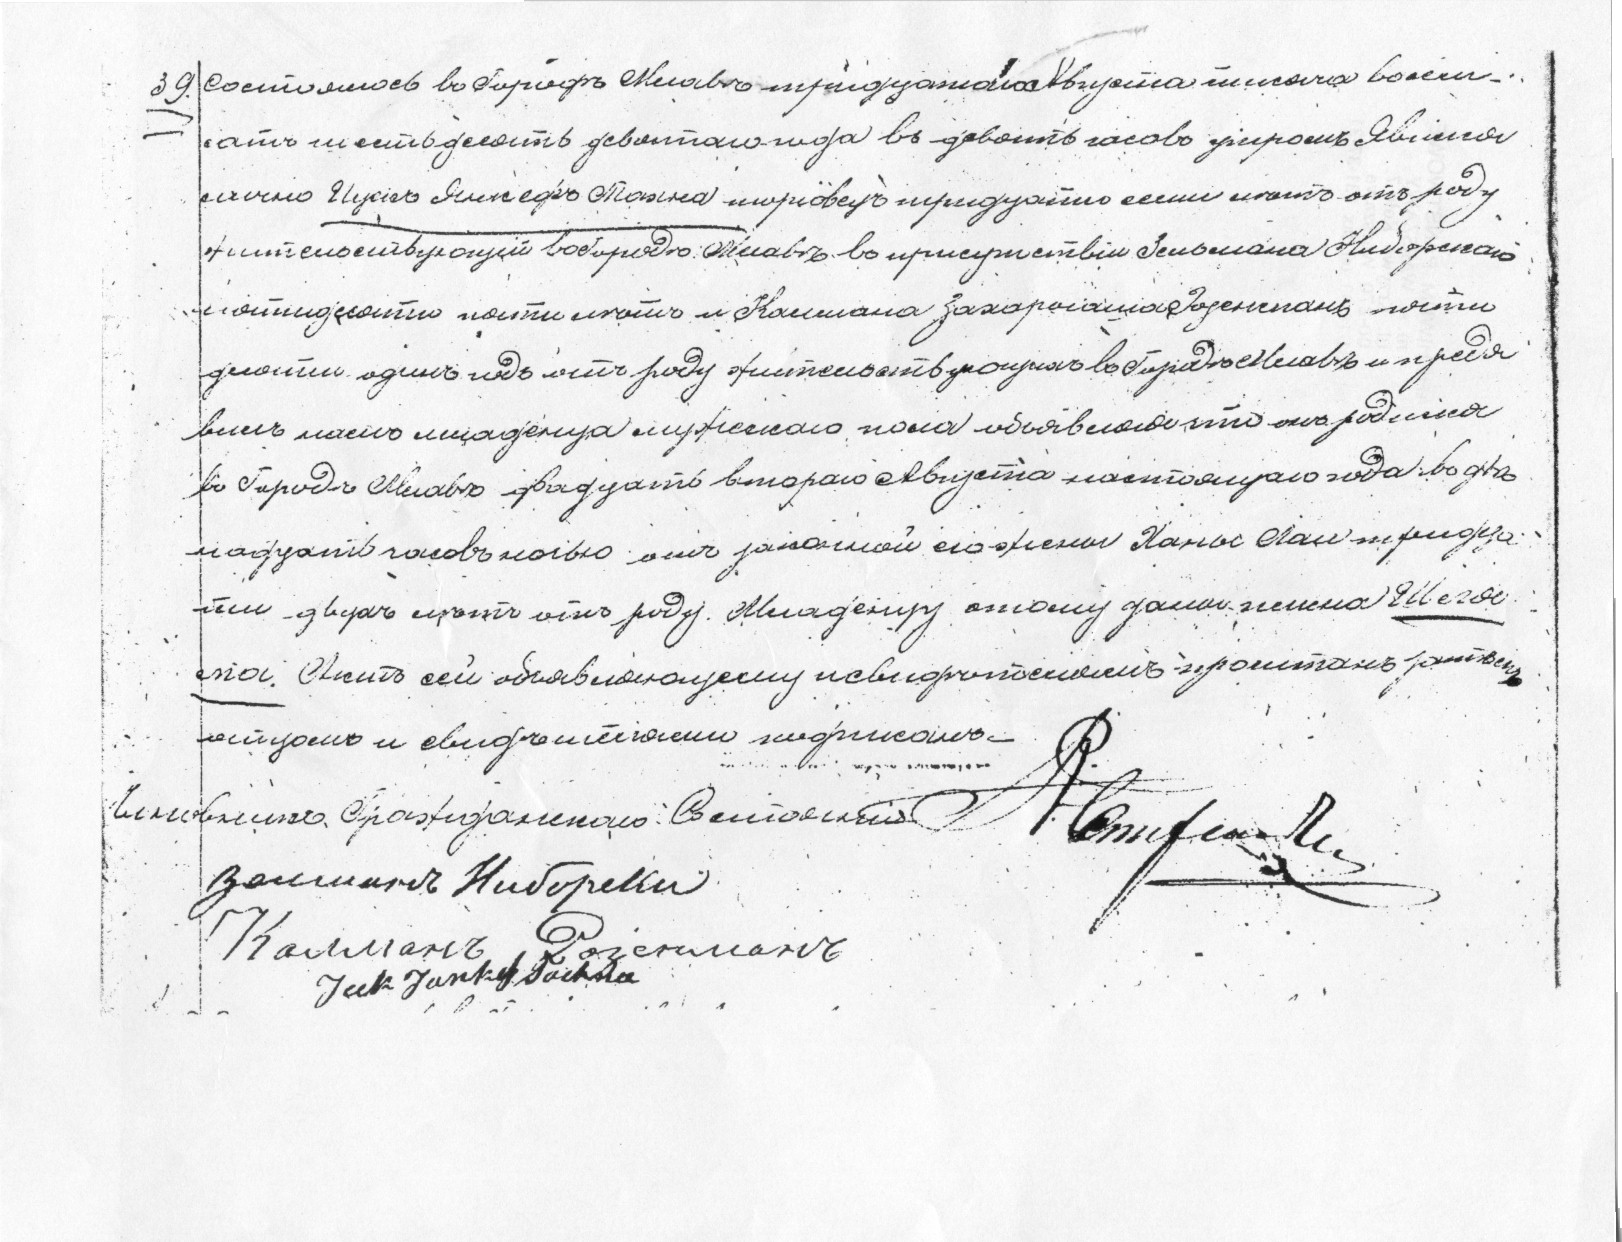 39. Состоялось въ Городѣ Млавѣ тридцатаго Августа тысяча восем-
сотъ шестьдесятъ девятаго года въ девять часовъ утромъ Явился
лично Ицикъ Янкефъ Тахна торговецъ тридцати семи лѣтъ отъ роду
жительствующій въ Городѣ Млавѣ въ присутствіи Зельмана Ниборскаго
пятидесяти пяти лѣтъ и Калмана Розенманъ пяти
десяти одинъ годъ отъ роду жительствующихъ въ Городѣ Млавѣ и предя
вилъ намъ младенца мужескаго пола объявляя что онъ родился
въ Городѣ Млавѣ двадцать втораго Августа настоящаго года въ двѣ
надцать часовъ ночью отъ законной его жены Ханы Лаи тридца
ти двухъ лѣтъ отъ роду. Младенцу этому даны имена
Актъ сей объявляющему и свидѣтелямъ прочитанъ затѣмъ
отцомъ и свидѣтелями подписанъ.
Чиновникъ Гражданскаго Состоянія
Зелманъ Ниборски
Калманъ Розенманъ
Icek Jankef Tachna